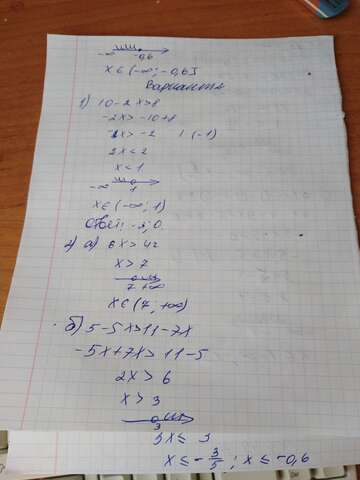 -∞ -0,6
x ∈ (-∞; -0,6]
Вариант 2
1) 10-2x>8
-2x > -10+8
-2x > -2 | (-1)
2x < 2
x < 1
-∞ 1
x ∈ (-∞; 1)
Ответ: -2; 0.
2) а) 6x > 42
x > 7
7 +∞
x ∈ (7, +∞)
б) 5-5x>11-7x
-5x+7x > 11-5
2x > 6
x > 3
3
5x ≤ 3
x ≤ -3/5 ; x ≤ -0,6